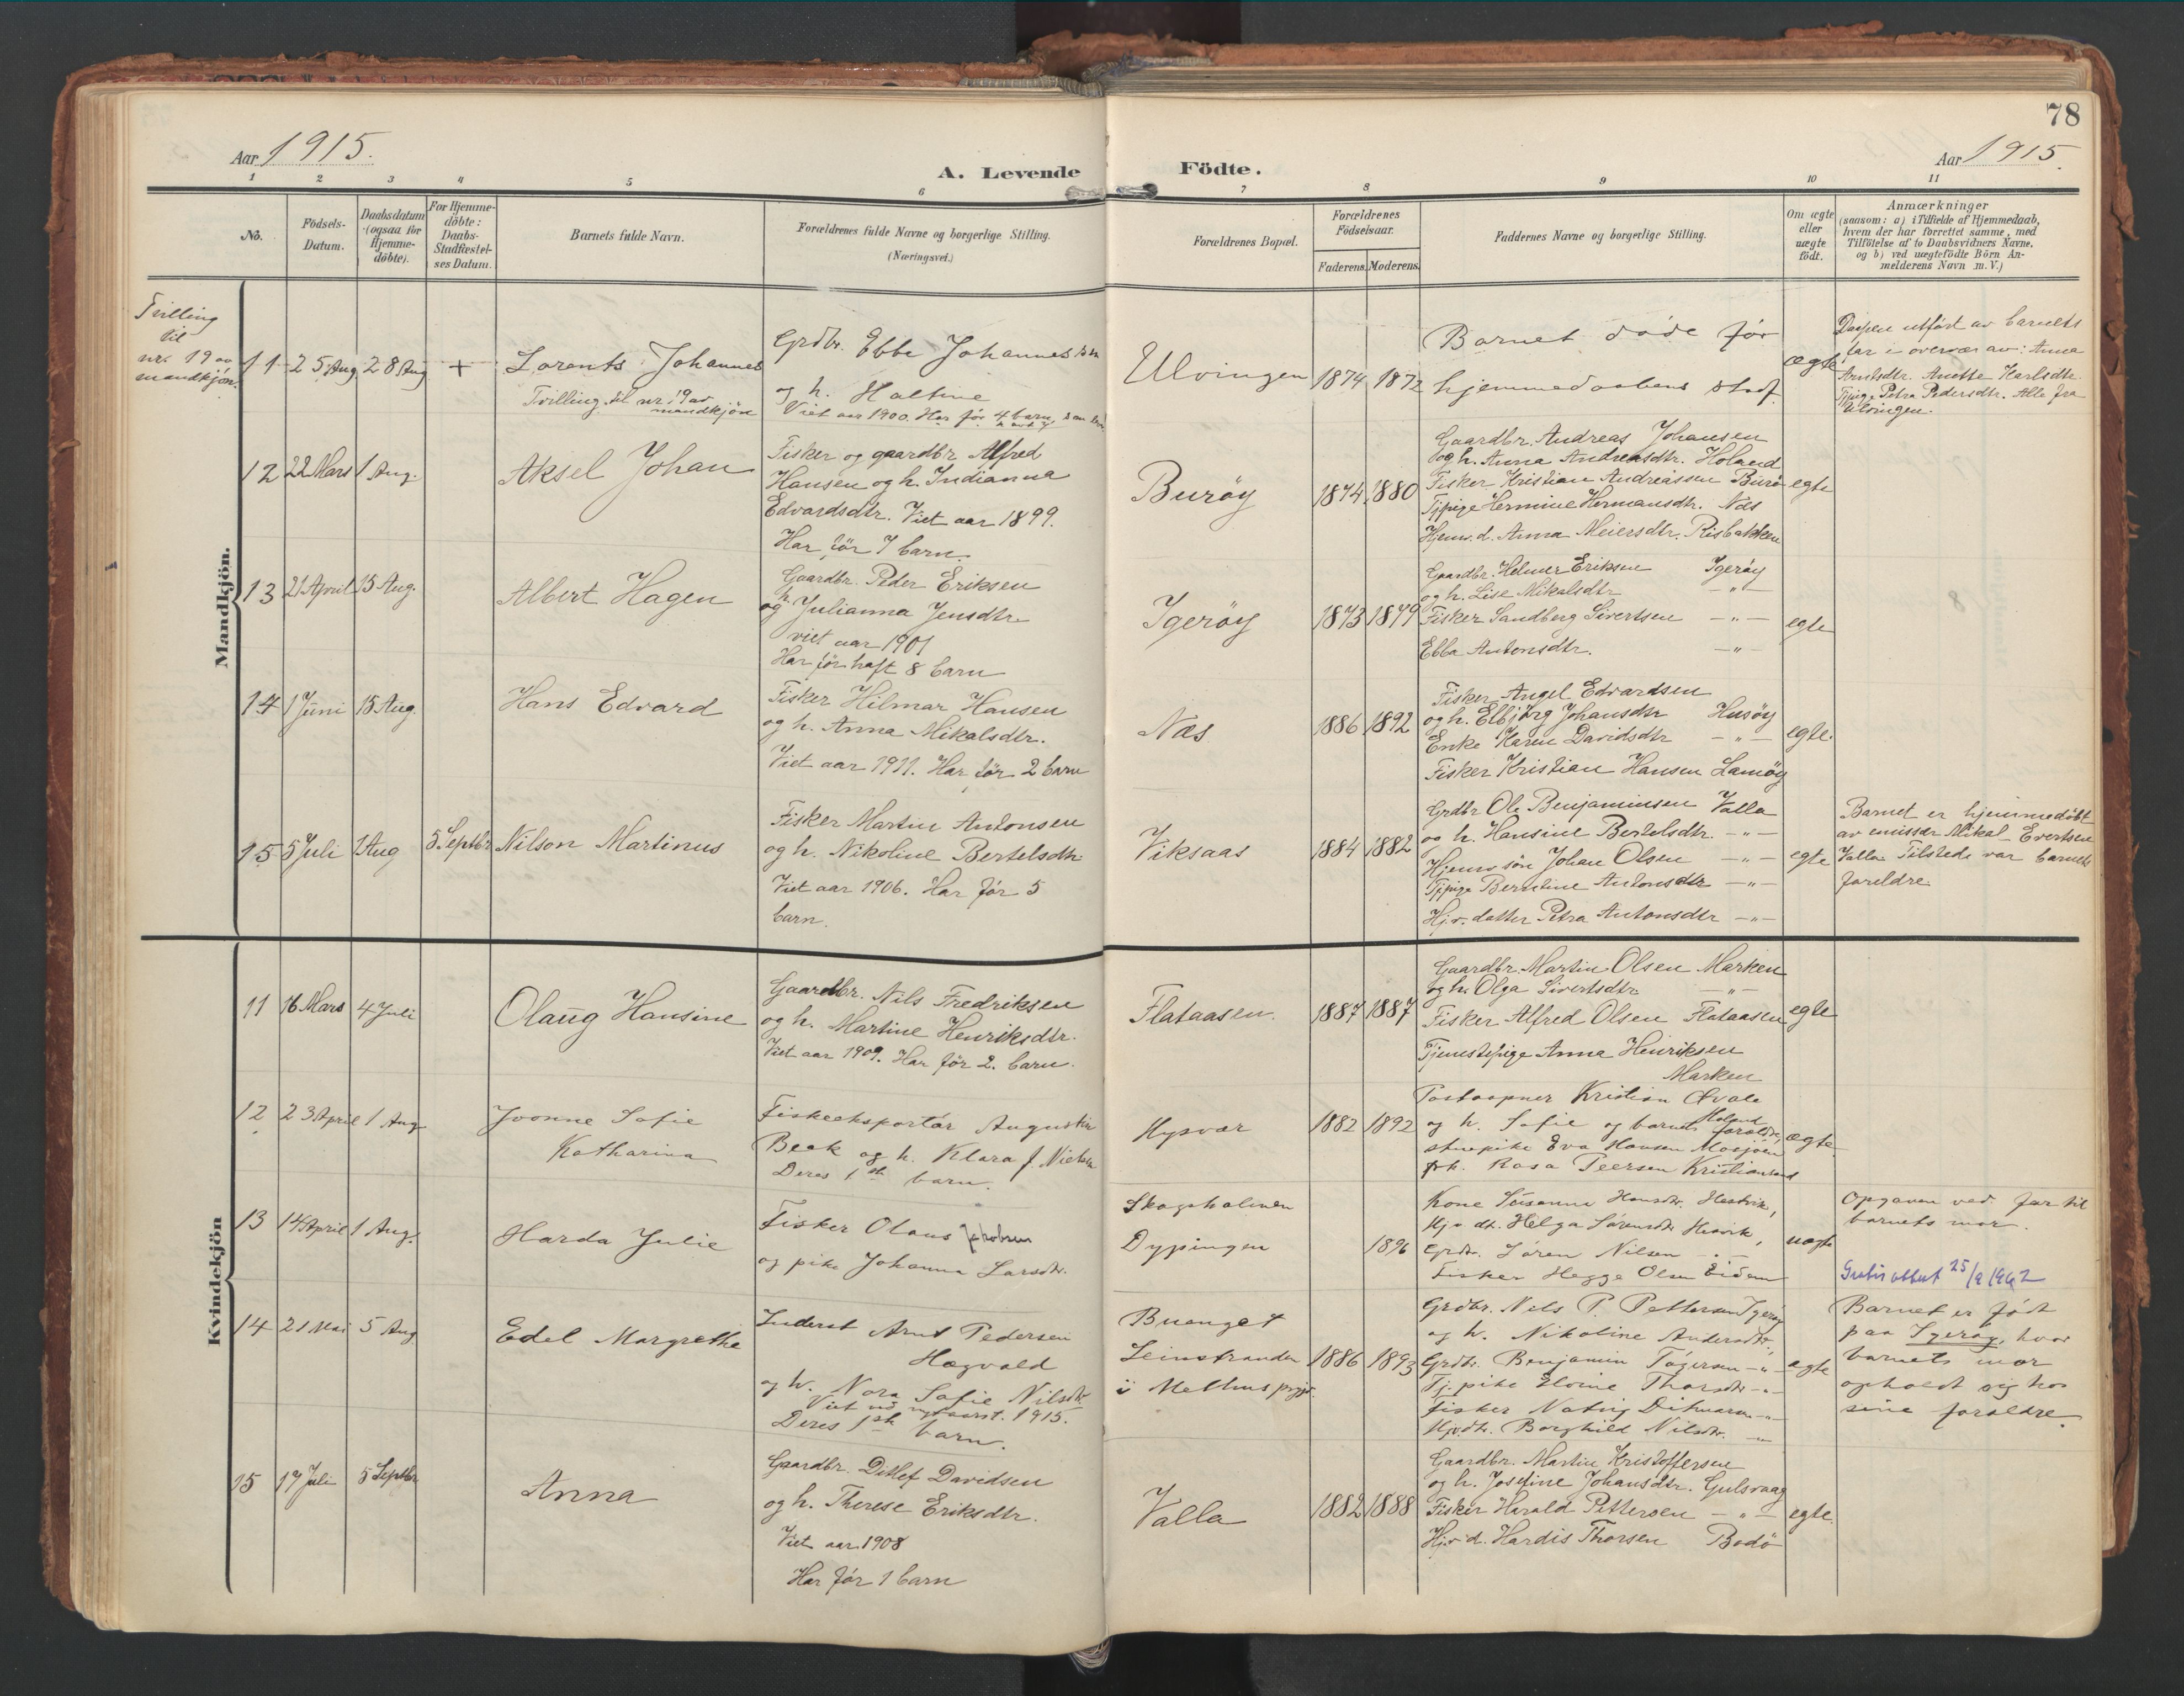 78
Aar 1915.
A. Levende Födte.
Aar 1915.
1 2 3 4 5 6 7 8 9 10 11
No.
Födsels-Datum.
Daabsdatum (ogsaa for Hjemme-döbte).
For Hjemme-döbte: Daabs-Stadfæstel-ses Datum.
Barnets fulde Navn.
Forældrenes fulde Navne og borgerlige Stilling.
(Næringsvei.)
Forældrenes Bopæl.
Forældrenes Födselsaar.
Faderens. Moderens.
Faddernes Navne og borgerlige Stilling.
Om ægte eller uægte födt.
Anmærkninger
(saasom: a) i Tilfælde af Hjemmedaab,
hvem der har forrettet samme, med
Tilföielse af to Daabsvidners Navne.
og b) ved uægtefödte Börn An-
melderens Navn m.V.)
Mandkjön.
Tvilling
til
nr. 19 av
mandkjön.
11 25 Aug 28 Aug + Lorents Johannes
Tvilling til nr. 19 av
mandkjön
Grdbr. Ebbe Johannessen
og h. Haltine
Viet aar 1900. Har før 4 barn
Ulvingen 1874 1872
Barnet døde før
hjemmedaabens stadf.
ægte
Daapen utført av barnets
far i overvær av: Anna
Arntsdtr. Anette Karlsdtr.
Tjpige Petra Pedersdtr. Alle fra
Ulvingen.
12 22 Mars 1 Aug. Aksel Johan
Fisker og gaardbr Alfred
Hansen og h. Indianna
Edvardsdtr. Viet aar 1899.
Har før 7 barn.
Burøy 1874 1880
Gaardbr. Andreas Johansen
og h. Anna Andreasdtr. Holand
Fisker Kristian Andreassen Burø
Tjpige Hermine Hermansdtr. Næs
Hjemv. d. Anna Meiersdtr. Risbakken
egte
13 21 April 15 Aug. Albert Hagen
Gaardbr. Peder Eriksen
og h. Julianna Jensdtr
viet aar 1901
Har før haft 8 barn
Igerøy 1873 1879
Gaardbr. Helmer Eriksen Igerøy
og h. Lise Mikalsdtr — " —
Fisker Sandberg Sivertsen — " —
Ebba Antonsdtr. — " —
egte
14 1 Juni 15 Aug. Hans Edvard
Fisker Hilmar Hansen
og h. Anna Mikalsdtr.
Viet aar 1911. Har før 2 barn
Næs 1886 1892
Fisker Angel Edvardsen
og h. Elbjørg Johansdtr Husøy
Enke Karen Davidsdtr — " —
Fisker Kristian Hansen Lamøy
egte.
15 5 Juli 1 Aug 5 Septbr Nilson Martinus
Fisker Martin Antonsen
og h. Nikoline Bertelsdtr
Viet aar 1906. Har før 5
barn.
Viksaas 1884 1882
Grdbr Ole Benjaminsen Valla
og h. Hansine Bertelsdtr. — " —
Hjemv søn Johan Olsen — " —
Tjpige Berntine Antonsdtr — " —
Hj.v. datter Petra Antonsdtr — " —
egte
Barnet er hjemmedøbt
av emissær Mikal Evertsen
Valla. Tilstede var barnets
foreldre.
Kvindekjön
11 16 Mars 4 Juli Olaug Hansine
Gaardbr. Nils Fredriksen
og h. Martine Henriksdtr.
Viet aar 1909. Har før 2. barn.
Flataasen. 1887 1887
Gaardbr. Martin Olsen Marken
og h. Olga Sivertsdtr — " —
Fisker Alfred Olsen Flataasen
Tjenestepige Anna Henriksen
Marken
egte
12 23 April 1 Aug Yvonne Sofie
Katharina
Fiskeeksportør Augustin
Beck og h. Klara f. Nielsen
Deres 1ste barn.
Hysvær 1882 1892
Postaapner Kristian Qvale
Holand
og h. Sofie og barnets foreldre,
stuepike Eva Hansen Mosjøen
frk. Rosa Peersen Kristiansand
ægte
13 14 April 1 Aug. Harda Julie
Fisker Olaus Jakobsen
og pike Johanna Larsdtr.
Skogsholmen
Dypingen
1896
Kone Susanna Hansdtr. Hestvik,
Hjv dtr. Helga Sørensdtr Hesvik,
Grdbr. Søren Nilsen — " —
Fisker Hegge Olsen Eidem
uægte
Opgaven ved. far til
barnets mor.
25/9 1962
14 21 Mai 5 Aug Edel Margrethe
Inderst Arnt Pedersen
Hagvald
og h. Nora Sofie Nilsdtr
Viet ved nytaarst. 1915.
Deres 1ste barn.
Buenget
Leinstranden
i Melhus prgj. 1886 1893
Grdbr. Nils P. Pettersen Igerøy
og h. Nikoline Andersdtr,
Grdbr. Benjamin Tøgersen — " —
Tj. pike Thorsdtr — " —
fisker — " —
Hjvdtr. Borghild Nilsdtr. — " —
ægte
Barnet er født
paa Igerøy, hvor
barnets mor
opholdt sig hos
sine foreldre.
15 17 Juli 5 Septbr Anna
Gaardbr. Ditlef Davidsen
og h. Therese Eriksdtr.
Viet aar 1908
Har før 1 barn
Valla 1882 1888
Gaardbr. Martin Kristoffersen
og h. Josefine Johansdtr. Gulsvaag
Fisker Harald Pettersen — " —
Hjv d. Hardis Thorsen Bodø
egte.